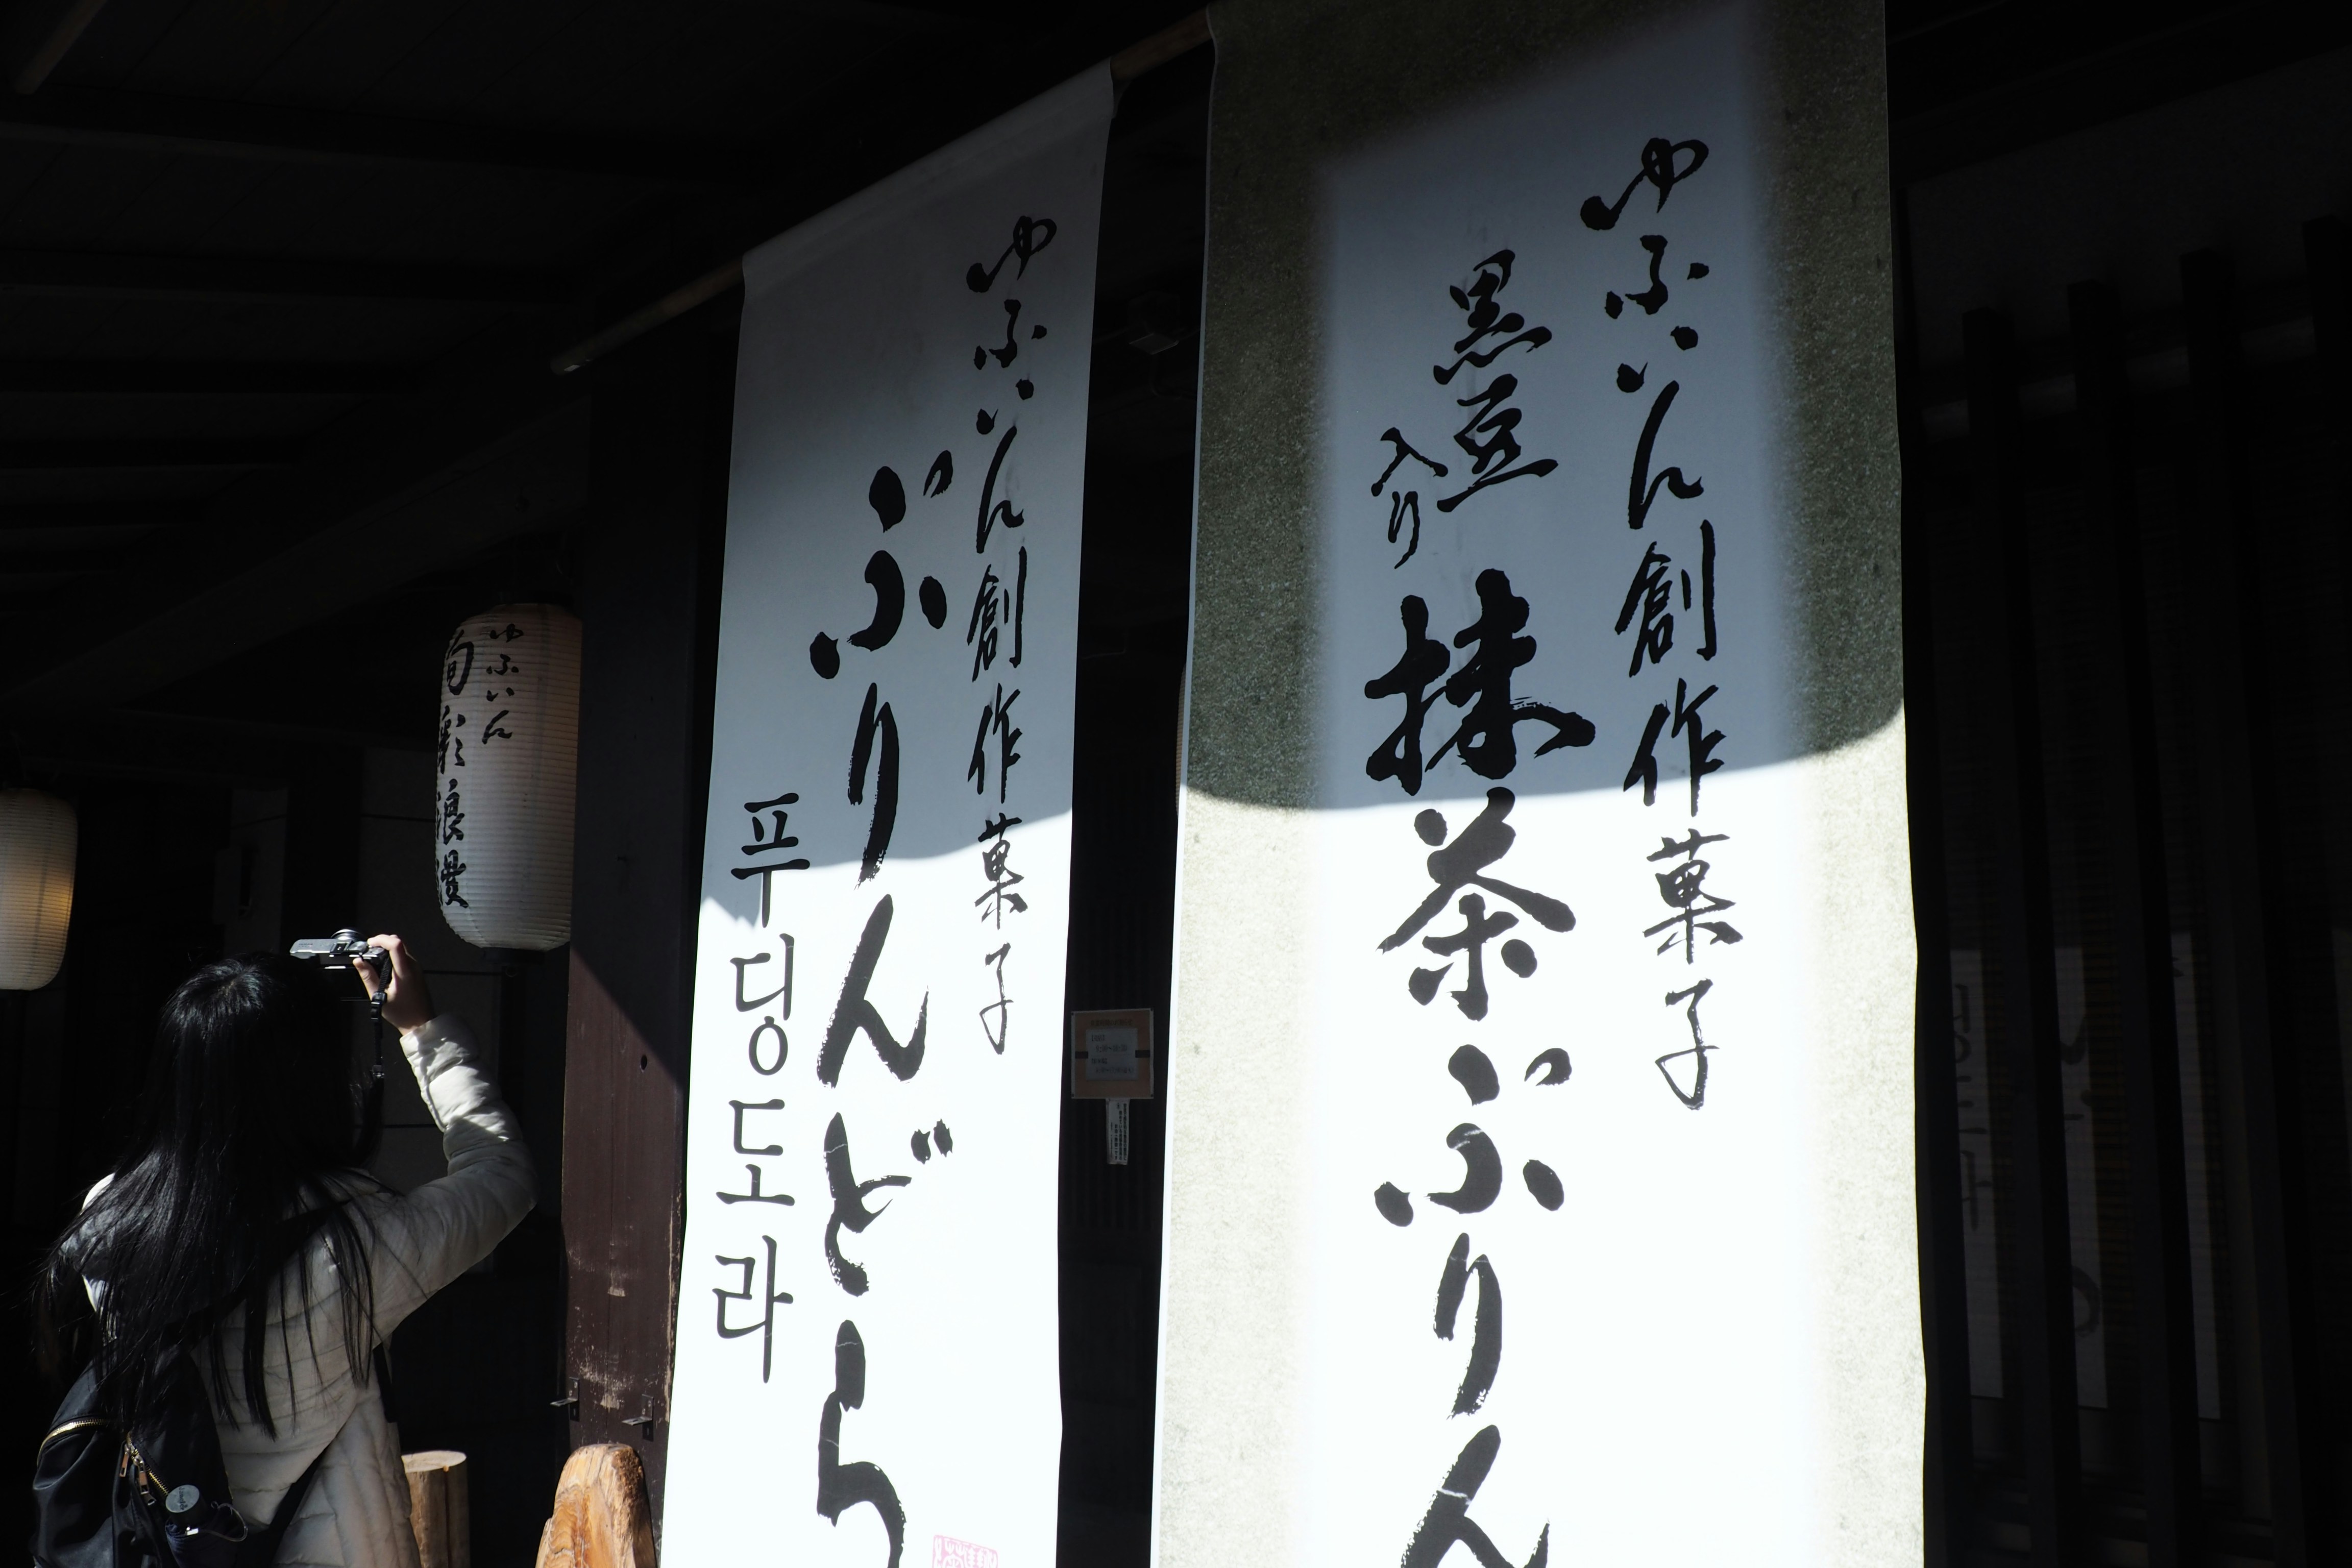 ゆふいん創作菓子
黒豆
入り
抹茶ぷりん
ゆふいん創作菓子
ぷりんどら
푸딩도라
ゆふいん
旬彩浪漫